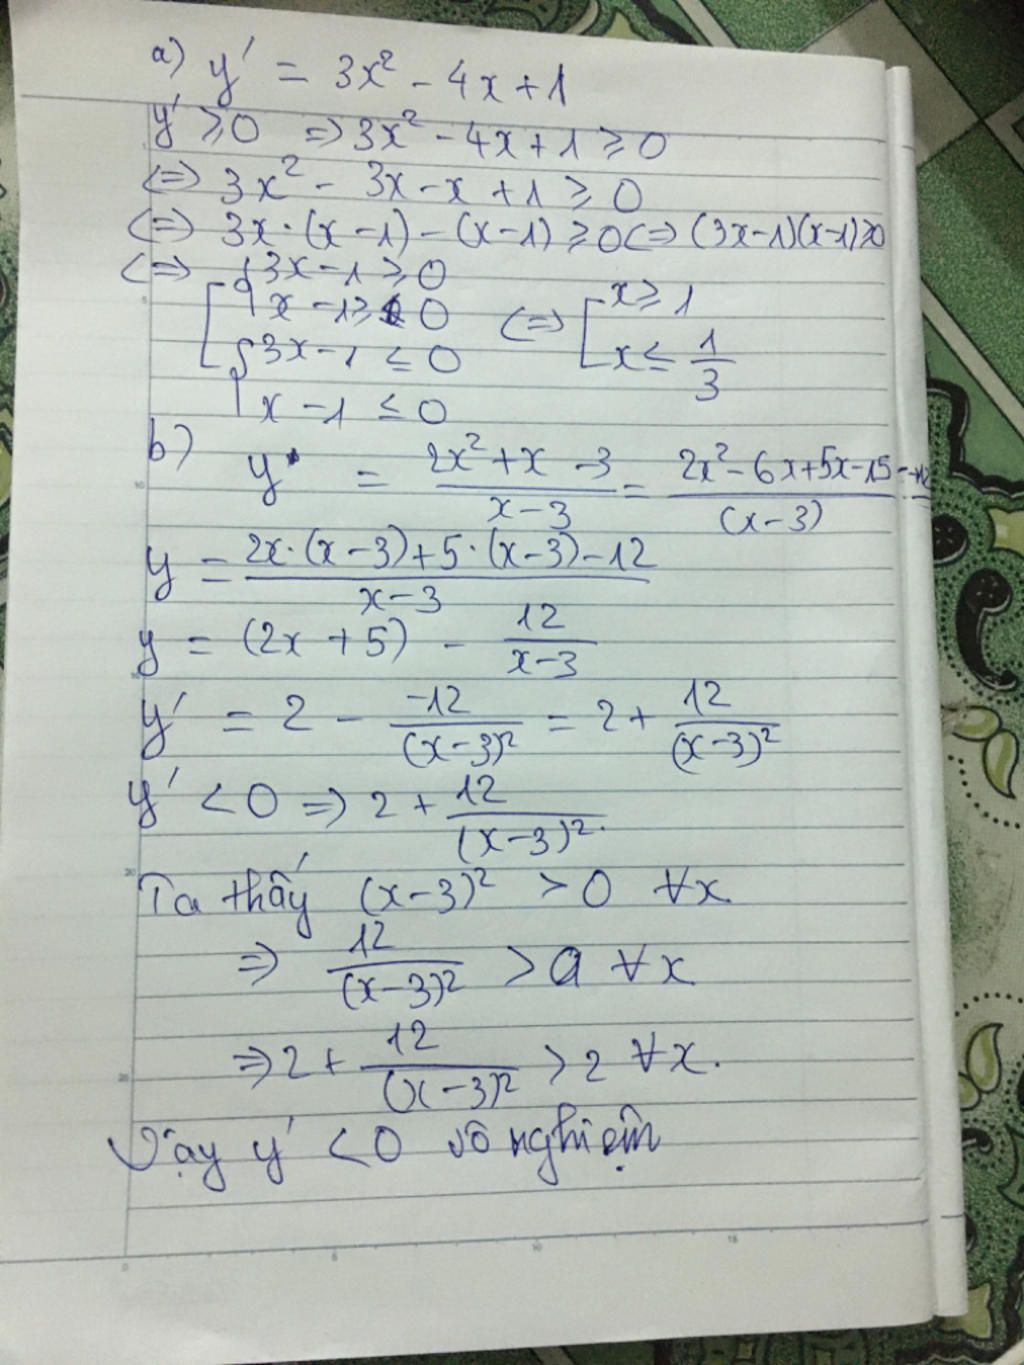 a) y' = 3x² - 4x + 1
y' ≥ 0 => 3x² - 4x + 1 ≥ 0
<=> 3x² - 3x - x + 1 ≥ 0
<=> 3x·(x-1) - (x-1) ≥ 0 <=> (3x-1)(x-1) ≥ 0
<=> [ { 3x - 1 ≥ 0
x - 1 ≥ 0 <=> [ x ≥ 1
{ 3x - 1 ≤ 0 x ≤ 1/3
x - 1 ≤ 0
b) y = (2x² + x - 3)/(x - 3) = (2x² - 6x + 5x - 15 + 12)/(x - 3)
y = (2x·(x-3) + 5·(x-3) - 12)/(x-3)
y = (2x + 5) - 12/(x-3)
y' = 2 - (-12)/(x-3)² = 2 + 12/(x-3)²
y' < 0 => 2 + 12/(x-3)².
Ta thấy (x-3)² > 0 ∀x.
=> 12/(x-3)² > 0 ∀x
=> 2 + 12/(x-3)² > 2 ∀x.
Vậy y' < 0 vô nghiệm
5
10
15
20
25
0 5 10 15